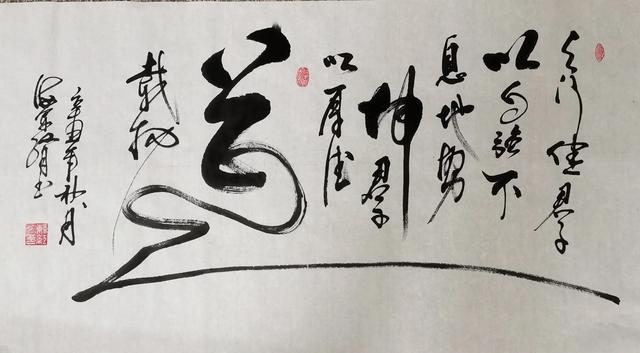 天行健君子
以自強不
息地势
坤君子
以厚德
道
載物
辛丑年秋月
书